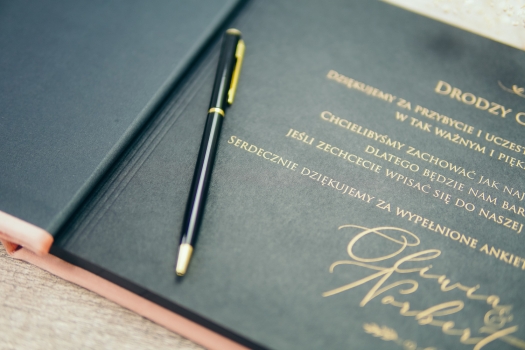 DRODZY
DZIĘKUJEMY ZA PRZYBYCIE I UCZEST
W TAK WAŻNYM I PIĘK
CHCIELIBYŚMY ZACHOWAĆ JAK NAJ
DLATEGO BĘDZIE NAM BAR
JEŚLI ZECHCECIE WPISAĆ SIĘ DO NASZEJ
SERDECZNIE DZIĘKUJEMY ZA WYPEŁNIONE ANKIET
Oliwia &
Norbert